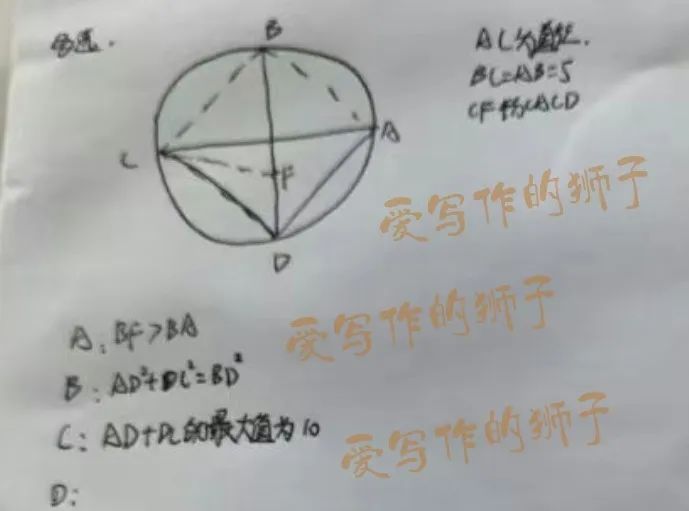 多选.
B
AC为直径.
BC=AB=5
CF平分∠ACD
A
C
F
D
爱写作的狮子
A: BF>BA
爱写作的狮子
B: AD²+DC²=BD²
C: AD+DC的最大值为10
爱写作的狮子
D: